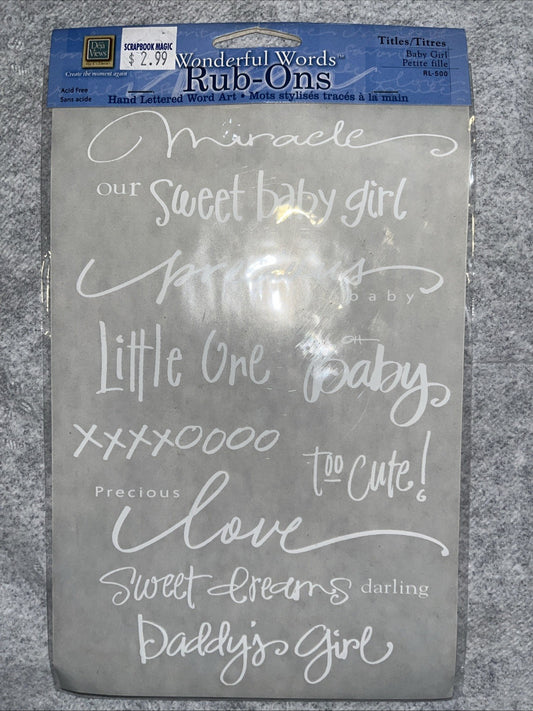 Déjà Views
Create the moment again
Acid Free
Sans acide
SCRAPBOOK MAGIC
$ 2.99
Wonderful Words™
Rub-Ons
Hand Lettered Word Art • Mots stylisés tracés à la main
Titles/Titres
Baby Girl
Petite fille
RL-500
miracle
our sweet baby girl
precious
baby
Little One
oh
baby
xxxxoooo
too cute!
Precious
love
sweet dreams darling
Daddy's Girl